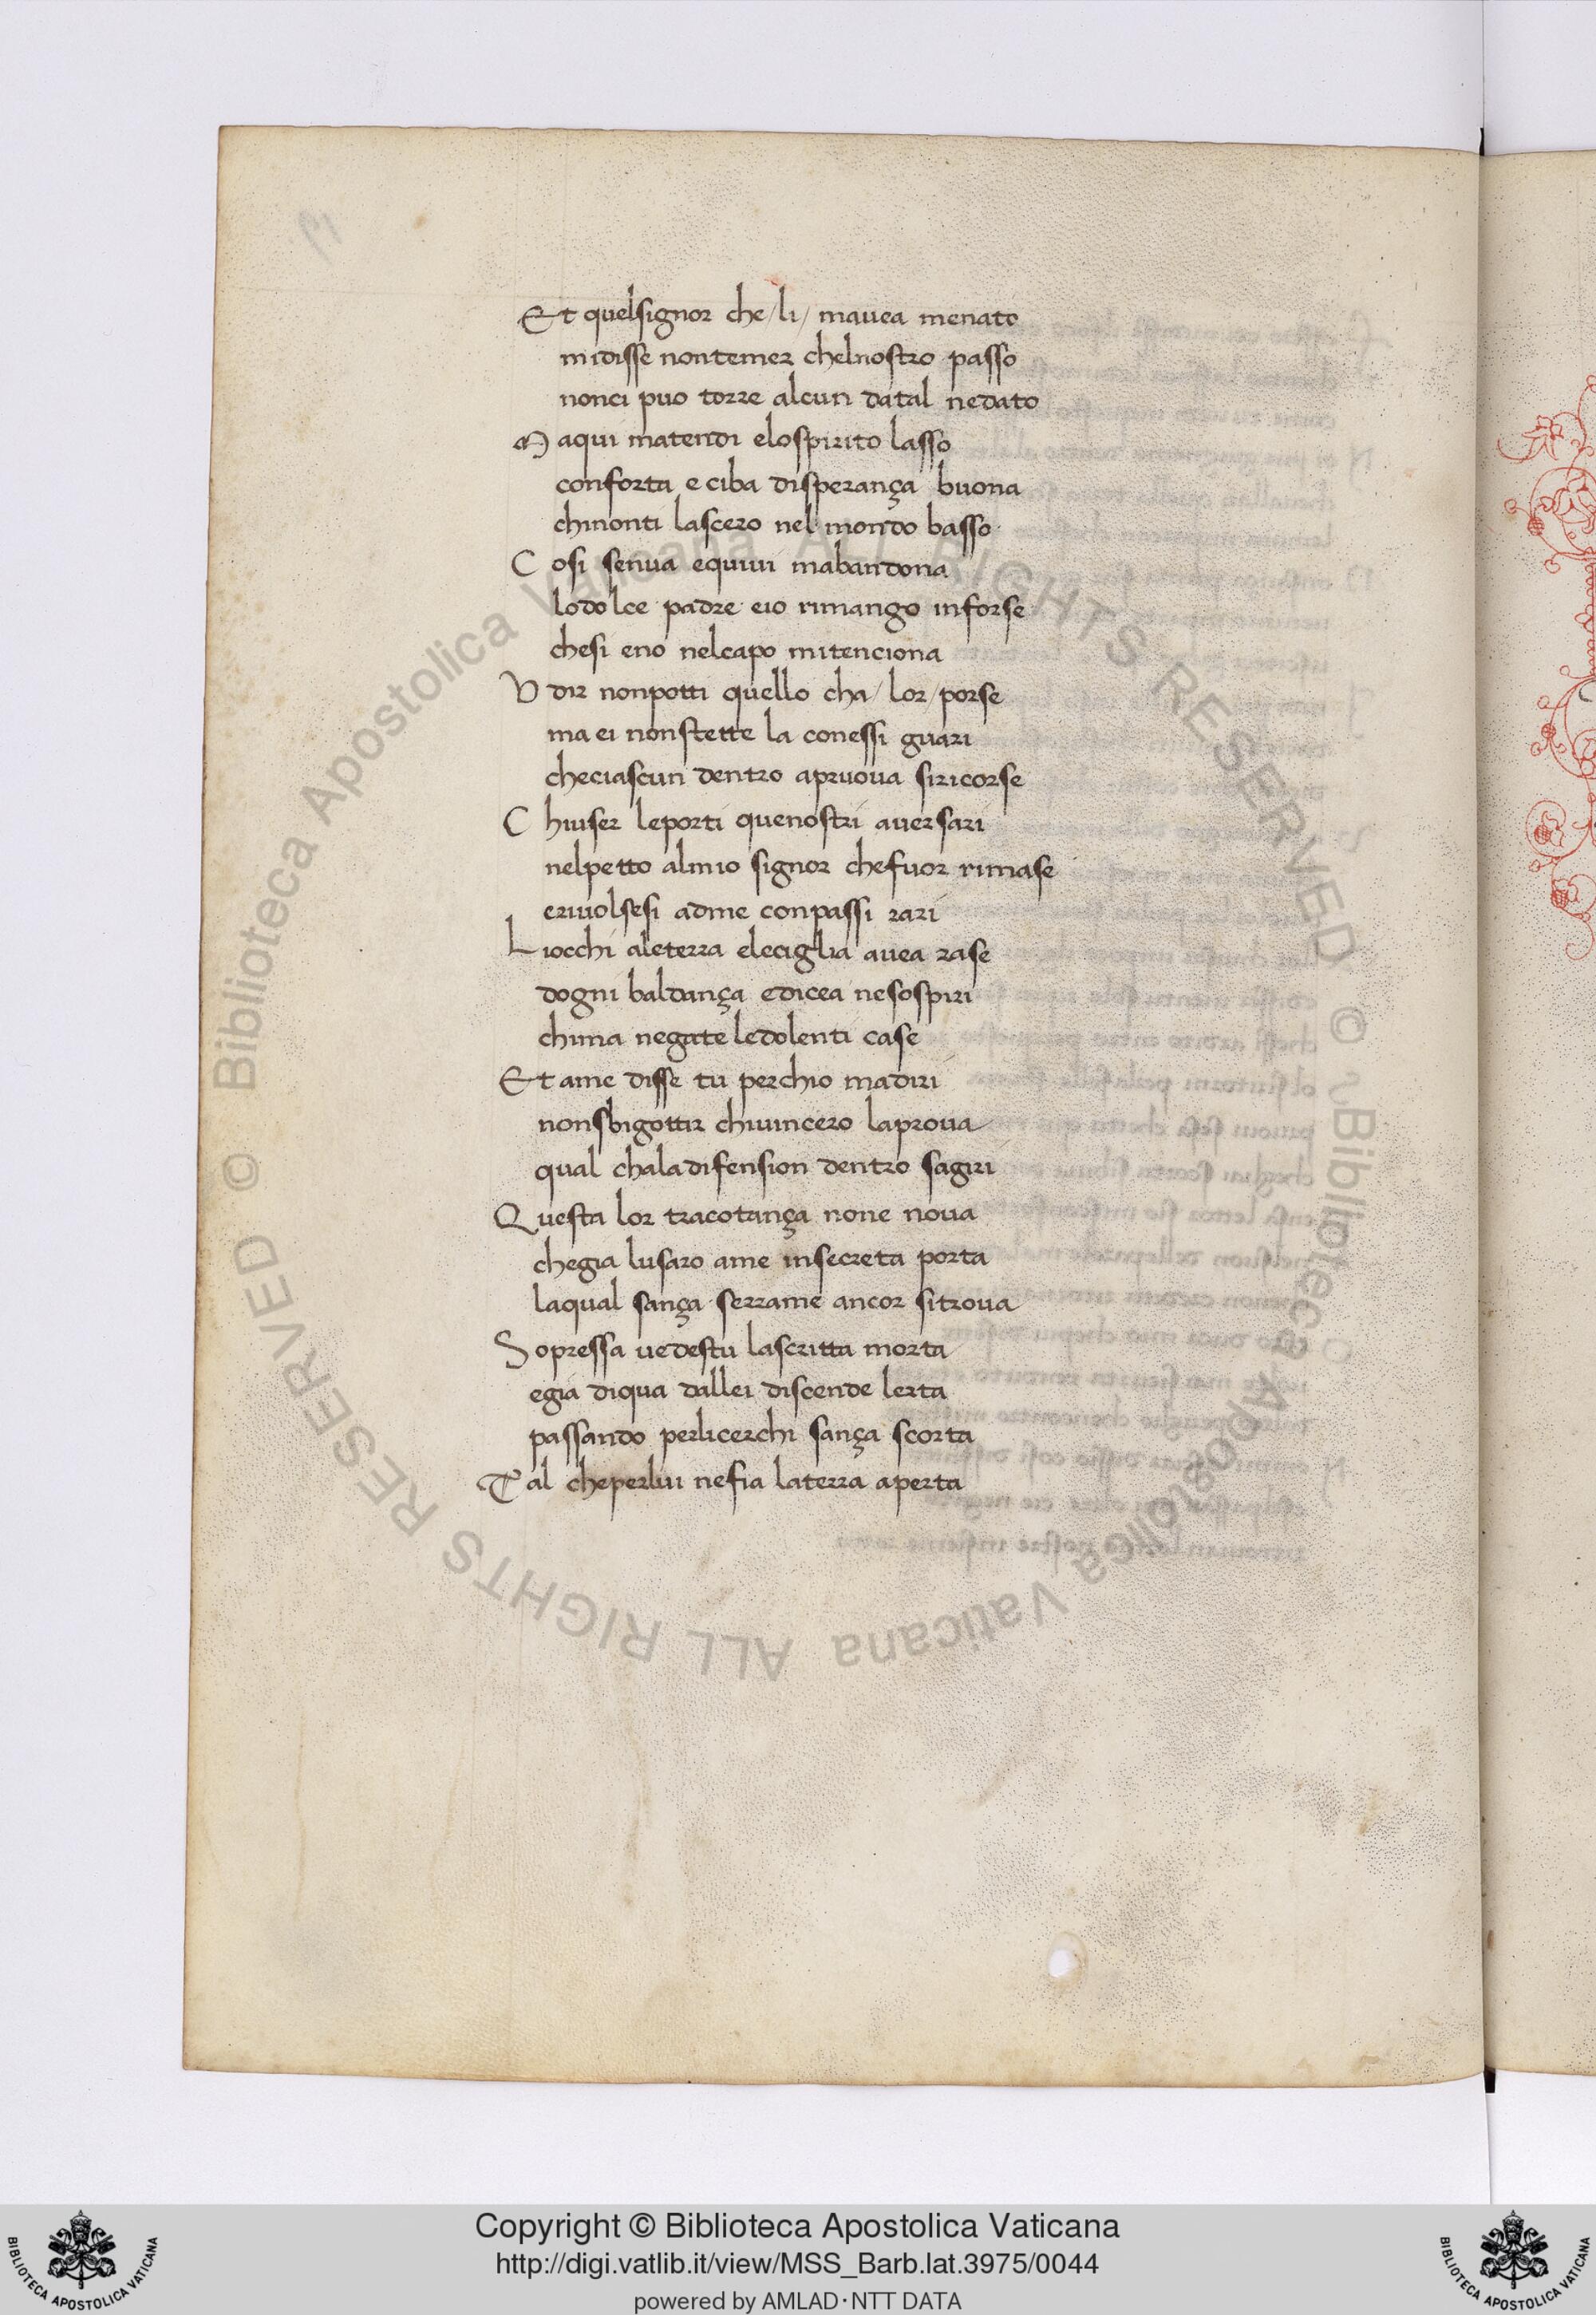 Et quelsignor che/li/ mauea menato
midisse nontemer chelnostro passo
nonci puo torre alcun datal nedato
Maqui matendi elospirito lasso
conforta e ciba disperança buona
chinonti lascero nel mondo basso
Cosi senua equiui mabandona
lodolce padre eio rimango inforse
chesi eno nelcapo mitenciona
Vdir nonpotti quello cha/lor/porse
ma ei nonstette la conessi guari
checiascun dentro apruoua siricorse
Chiuser leporti quenostri auersari
nelpetto almio signor chefuor rimase
eriuolsesi adme conpassi rari
Liocchi aleterra eleciglia auea rase
dogni baldança edicea nesospiri
chima negate ledolenti case
Et ame disse tu perchio madiri
nonsbigottir chiuincero laproua
qual chaladifension dentro sagiri
Questa lor tracotança none noua
chegia lusaro ame insecreta porta
laqual sança serrame ancor sitroua
Sopressa uedestu lascritta morta
egia diqua dallei discende lerta
passando perlicerchi sança scorta
Tal cheperlui nefia laterra aperta
© Biblioteca Apostolica Vaticana ALL RIGHTS RESERVED © Biblioteca Apostolica Vaticana ALL RIGHTS RESERVED
Copyright © Biblioteca Apostolica Vaticana
http://digi.vatlib.it/view/MSS_Barb.lat.3975/0044
powered by AMLAD·NTT DATA
BIBLIOTECA APOSTOLICA VATICANA
BIBLIOTECA APOSTOLICA VATICANA